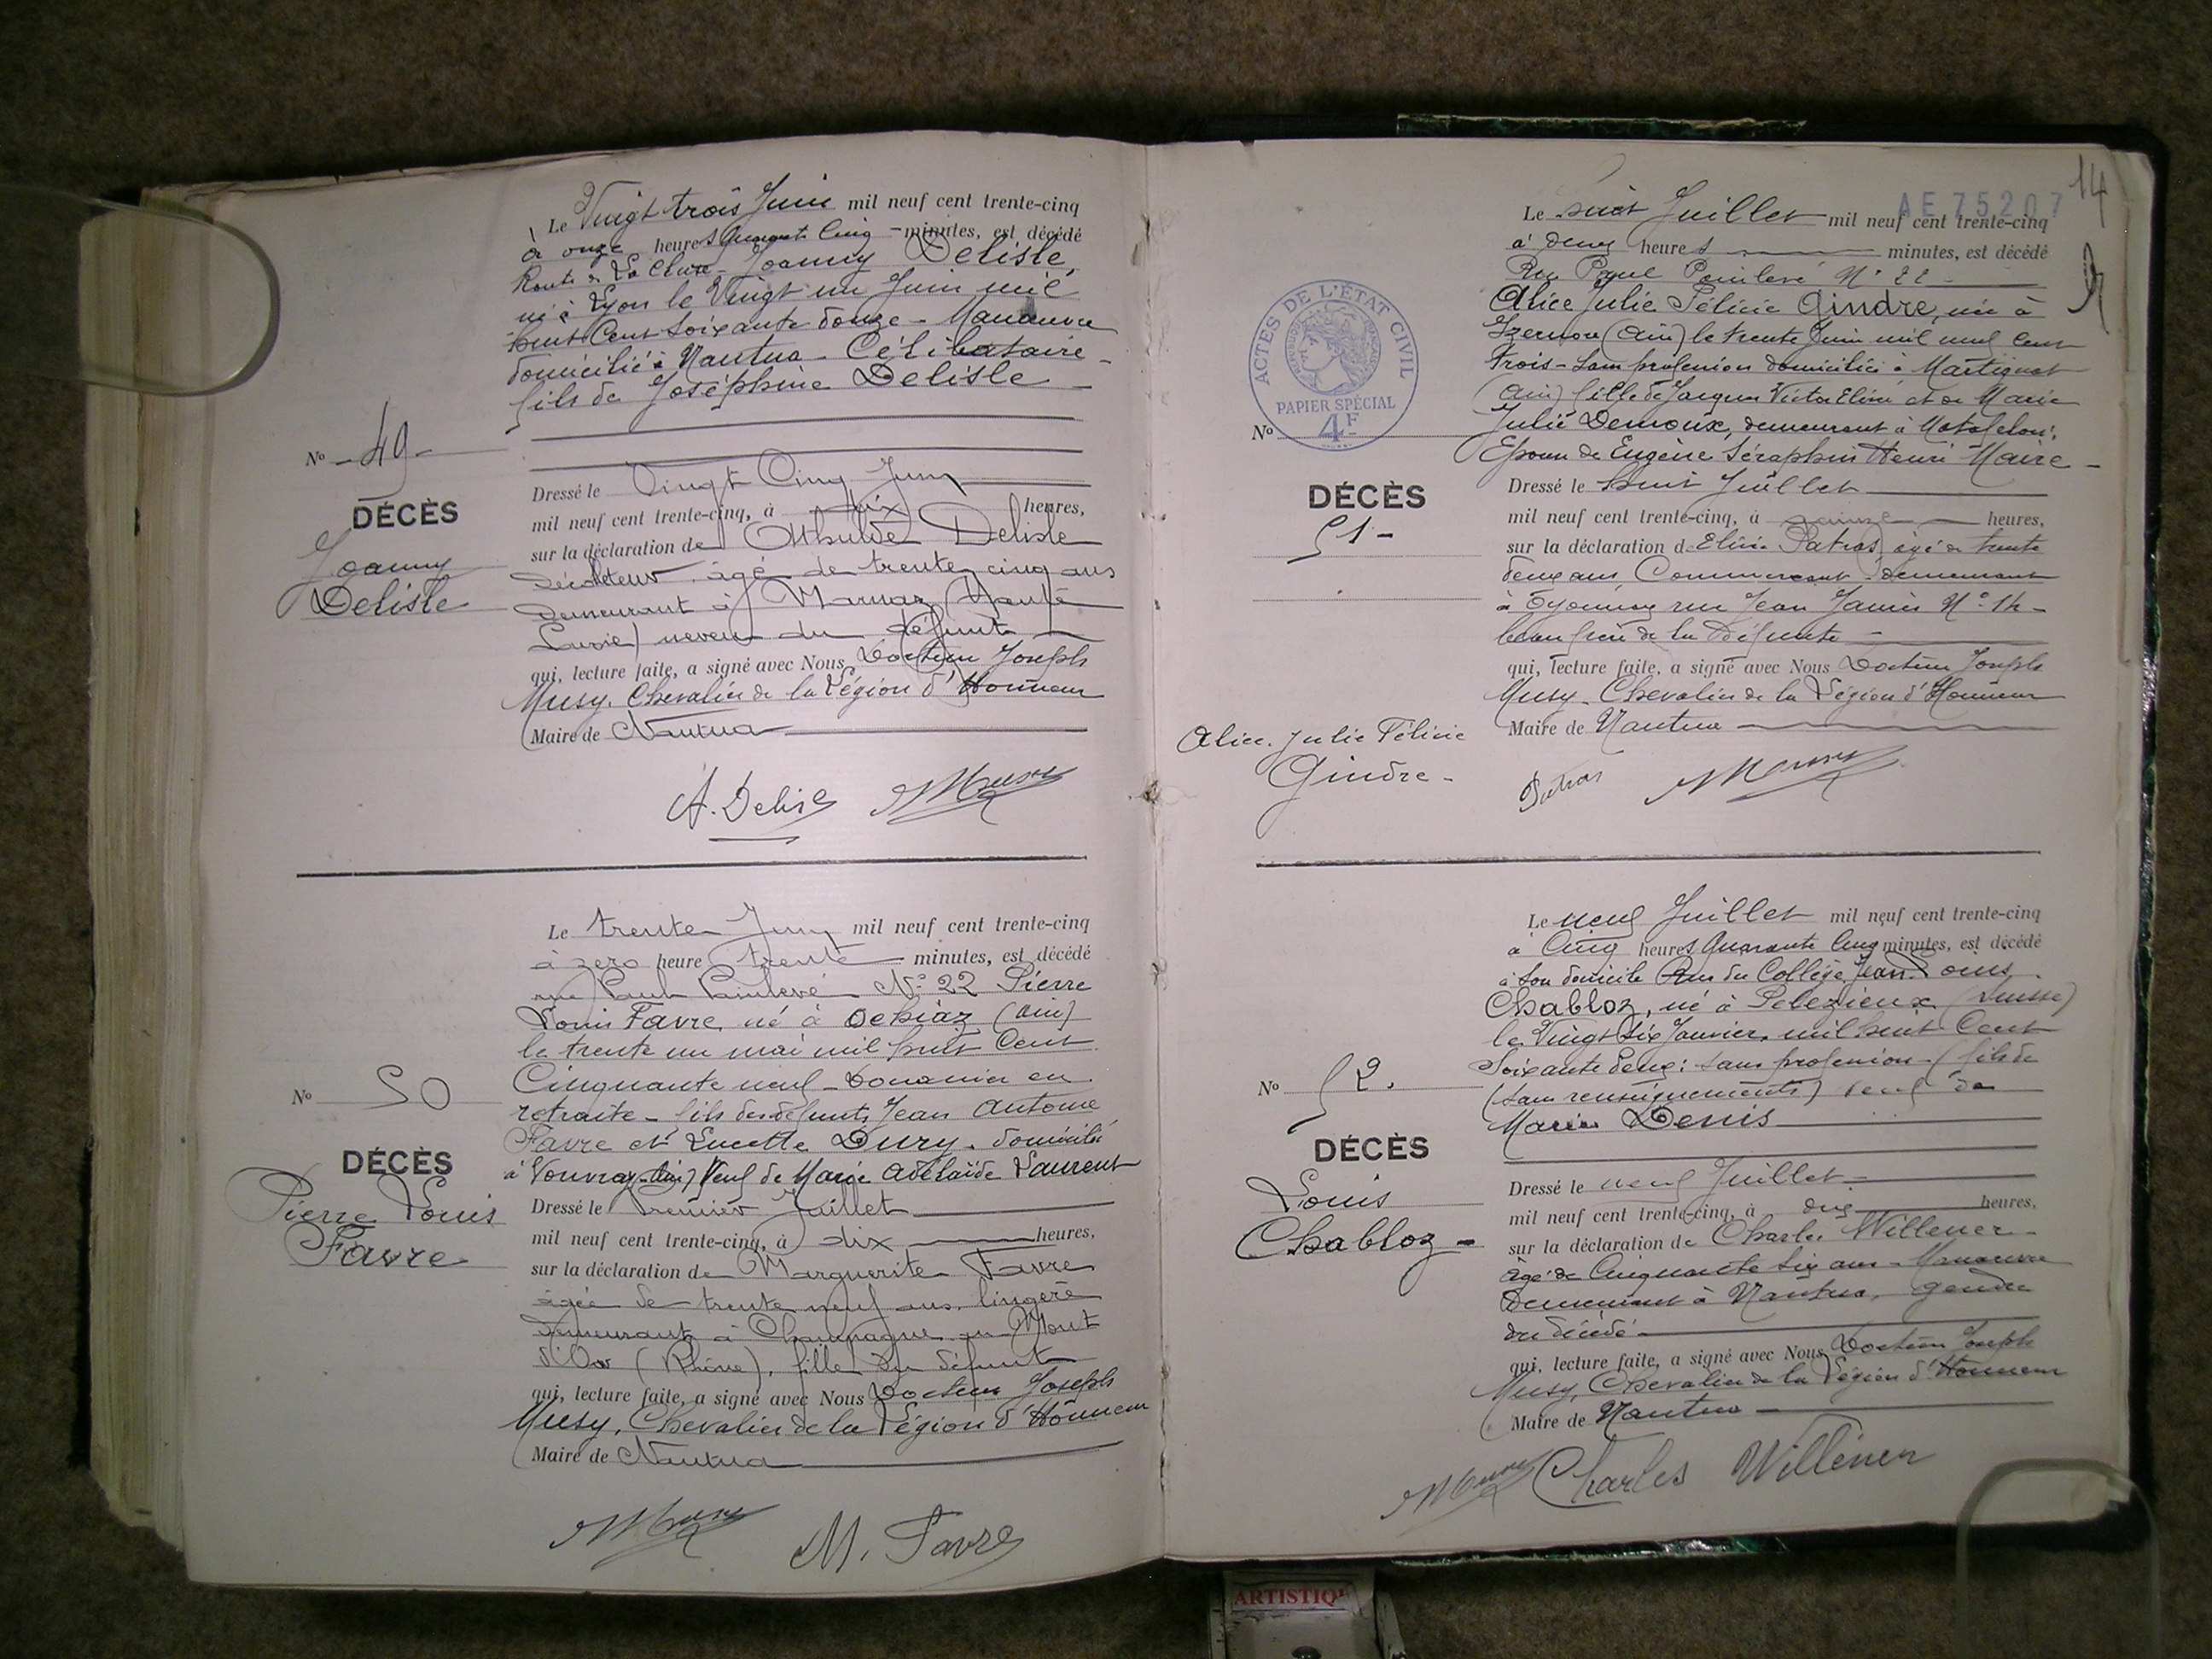 Le Vingt trois Juin mil neuf cent trente-cinq
à onze heures quarante Cinq minutes, est décédé
Route de La Cluse - Joanny Delisle,
né à Lyon le Vingt un Juin mil
huit Cent Soixante douze - Manœuvre
domicilié à Nantua - Célibataire -
fils de Joséphine Delisle
No - 49 -
DÉCÈS
Joanny
Delisle
Dressé le Vingt Cinq Juin
mil neuf cent trente-cinq, à dix heures,
sur la déclaration de Delisle
décolleteur âgé de trente cinq ans
demeurant à Marnaz (Haute
Savoie) neveu du défunt
qui, lecture faite, a signé avec Nous Docteur Joseph
Musy, Chevalier de la Légion d'Honneur
Maire de Nantua
A. Delisle Musy
Le trente Juin mil neuf cent trente-cinq
à zero heure trente minutes, est décédé
rue Paul Painlevé No 22 Pierre
Louis Favre, né à Ochiaz (Ain)
le trente un mai mil huit Cent
Cinquante neuf - Douanier en
retraite - fils des défunts Jean Antoine
Favre et Lucette Dury - domicilié
à Vouvray (Ain) Veuf de Marie Adélaïde Laurent
No 50
DÉCÈS
Pierre Louis
Favre
Dressé le Premier Juillet
mil neuf cent trente-cinq, à dix heures,
sur la déclaration de Marguerite Favre
âgée de trente neuf ans, lingère
demeurant à Champagne au Mont
d'Or (Rhône), fille du défunt
qui, lecture faite, a signé avec Nous Docteur Joseph
Musy, Chevalier de la Légion d'Honneur
Maire de Nantua
Musy M. Favre
14
AE 75207
Le huit Juillet mil neuf cent trente-cinq
à deux heures minutes, est décédé
Rue Paul Painlevé No 22 -
Alice Julie Félicie Gindre, née à
Izernore (Ain) le trente Juin mil neuf cent
trois - Sans profession domiciliée à Martignat
(Ain) fille de Jacques Victor Elisé et de Marie
Julie Demoux, demeurant à Matafelon,
Epouse de Eugène Séraphin Henri Maire -
ACTES DE L'ÉTAT CIVIL
PAPIER SPÉCIAL
4F
No
DÉCÈS
51 -
Alice Julie Félicie
Gindre -
Dressé le huit Juillet
mil neuf cent trente-cinq, à heures,
sur la déclaration d Patras, âgé de trente
deux ans, Commerçant demeurant
à Oyonnax rue Jean Jaurès No 14 -
beau frère de la Défunte -
qui, lecture faite, a signé avec Nous Docteur Joseph
Musy - Chevalier de la Légion d'Honneur
Maire de Nantua
Patras Musy
Le neuf Juillet mil neuf cent trente-cinq
à Cinq heures Quarante Cinq minutes, est décédé
à son domicile Rue du Collège, Jean Louis
Chabloz, né à Pelezieux (Suisse)
le Vingt Six Janvier, mil huit Cent
Soixante Deux : sans profession - (fils de
(Sans renseignements) veuf de
Marie Denis
No 52.
DÉCÈS
Louis
Chabloz -
Dressé le neuf Juillet
mil neuf cent trente-cinq, à dix heures,
sur la déclaration de Charles Willener -
âgé de Cinquante Six ans - Manœuvre
Demeurant à Nantua, gendre
du décédé -
qui, lecture faite, a signé avec Nous Docteur Joseph
Musy, Chevalier de la Légion d'Honneur
Maire de Nantua -
Musy Charles Willener
ARTISTIQ